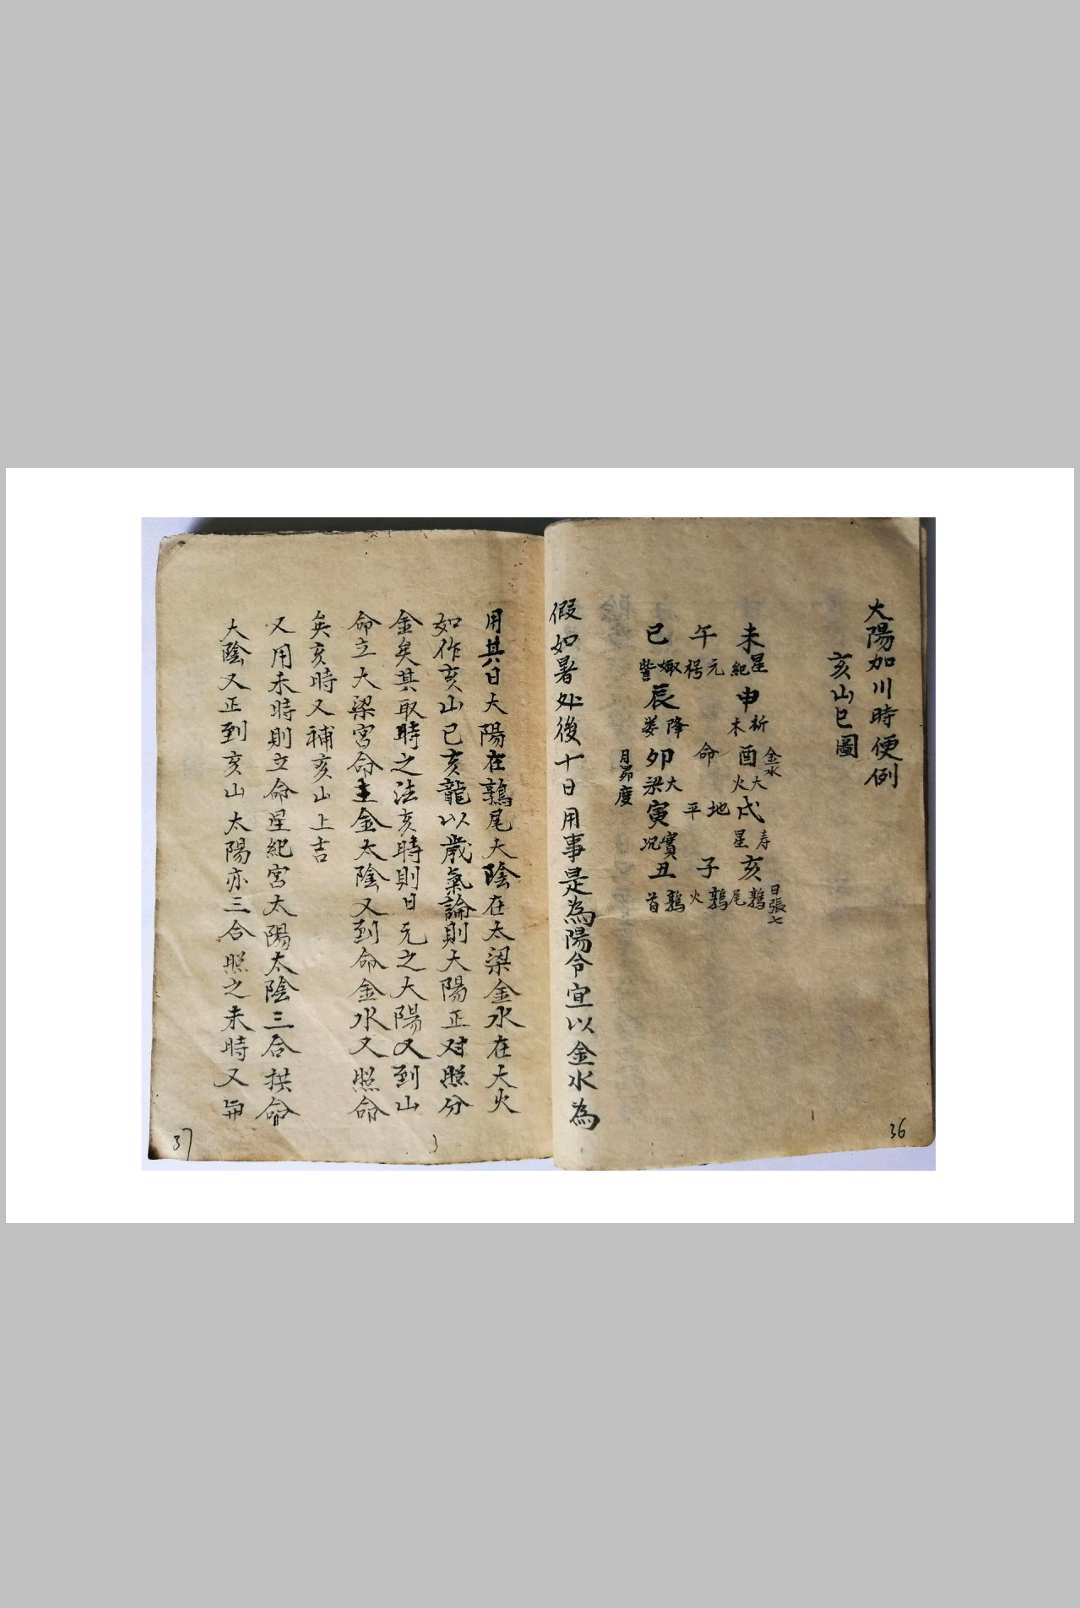 太陽加川時便例
亥山巳圖
未 星紀
申 析木
酉 大火 金水
戌 寿星
亥 鶉尾 日張七
午 元枵
命
地平
子 鶉火
巳 娵訾
辰 降婁
卯 大梁
寅 實况
丑 鶉首
月昴度
假如暑処後十日用事是為陽令宜以金水為
用其日大陽在鶉尾大陰在太梁金水在大火
如作亥山巳亥龍以歲氣論則大陽正对照分
金矣其取時之法亥時則日元之大陽又到山
命立大梁宮命主金太陰又到命金水又照命
矣亥時又補亥山上吉
又用未時則立命星紀宮太陽太陰三合拱命
大陰又正到亥山太陽亦三合照之未時又
36
37